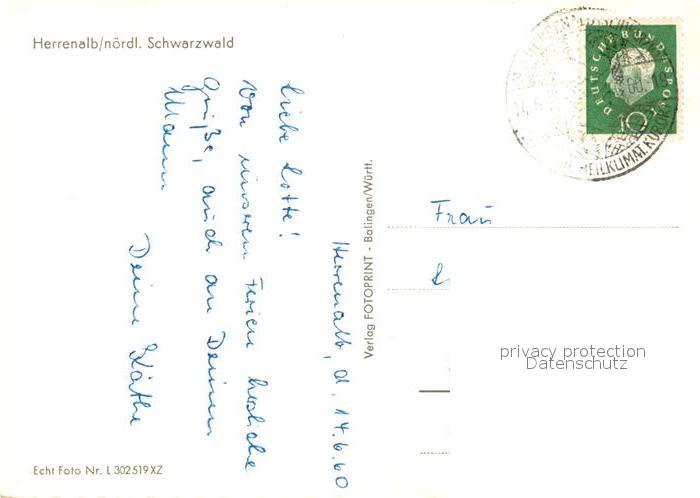 Herrenalb/nördl. Schwarzwald
Herrenalb, d. 14.6.60
Liebe Lotte!
Von unseren Ferien herzliche
Grüße, auch an Deinen
Mann
Deine Käthe
Echt Foto Nr. L 302519XZ
Verlag FOTOPRINT - Balingen/Württ.
DEUTSCHE BUNDESPOST
10
14.6.
HEILKLIMAT. KURORT
Frau
privacy protection
Datenschutz